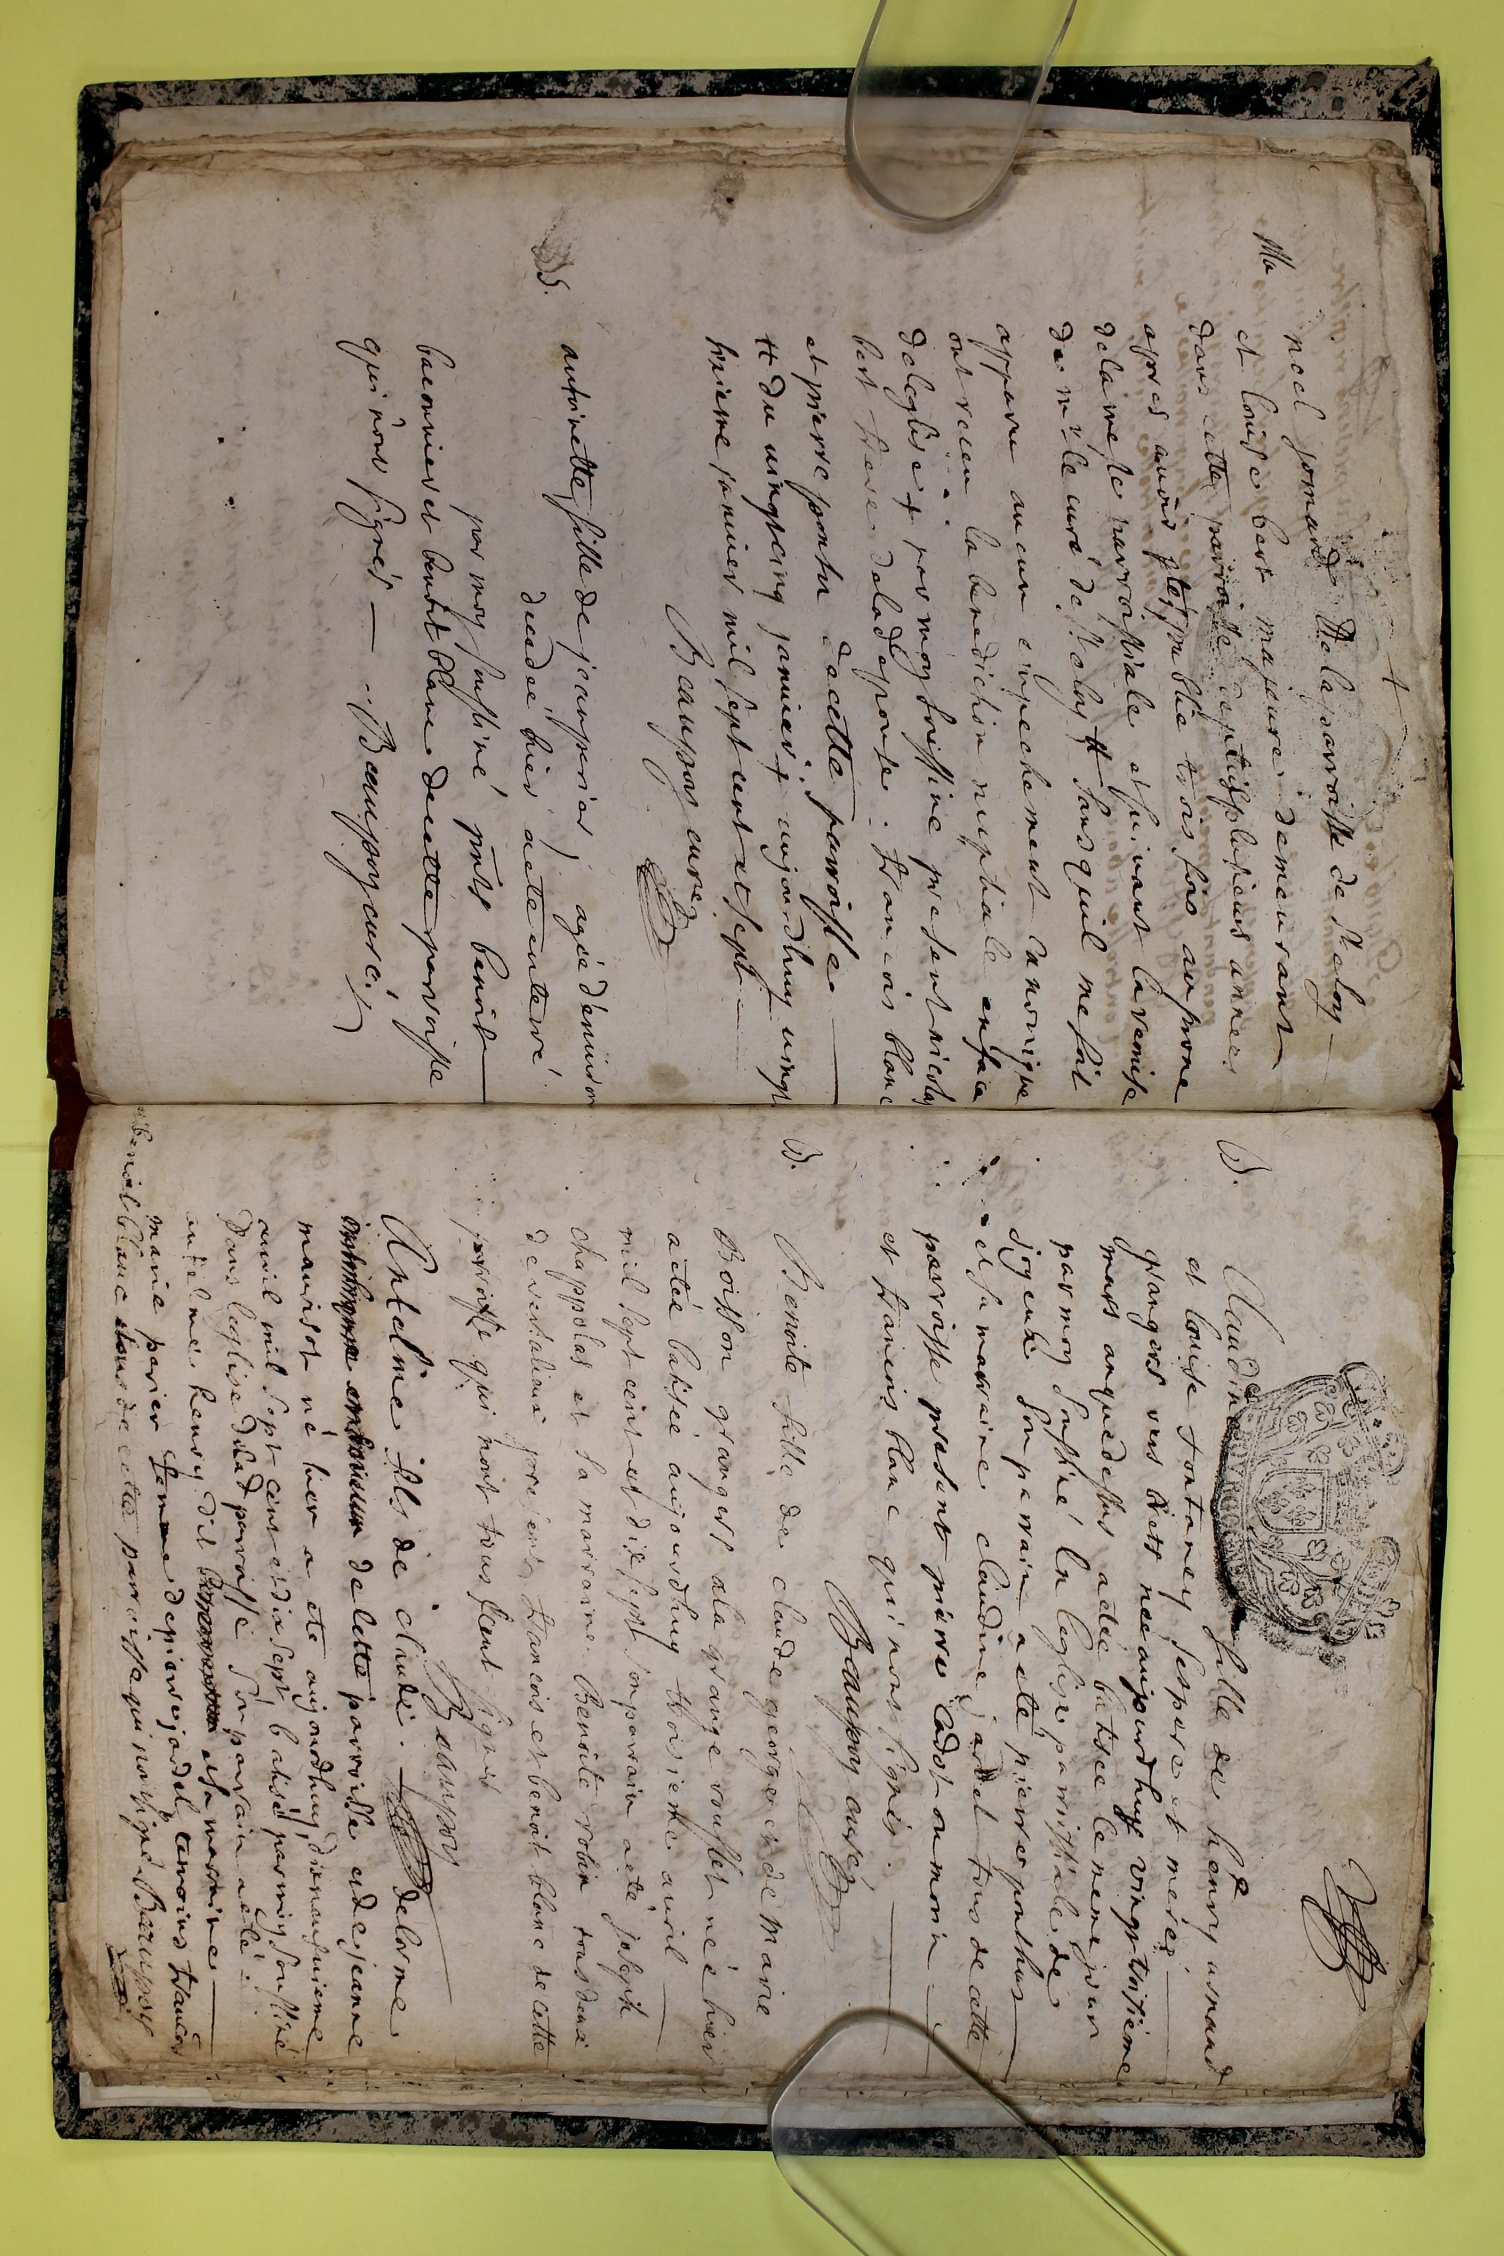 Ma
noel jomard de la parroisse de st eloy
et louise bert majeure demeurant
dans cette parroisse depuis plusieurs annees
apres avoir esté publie trois fois au prone
de la messe parroissiale et suivant la remise
de mr le curé de st eloy sans quil ne soit
apparu aucun empechement canonique
ont receu la benediction nuptiale en face
de leglise + par moy soussine present nicolas
bert frere de lad epouse . francois blanc
et pierre ponthu de cette parroisse
# du vingtcinq janvier + aujourdhuy vingt
sixieme janvier mil sept cent et sept
Beaupoy curé
S.
antoinette fille de jean perier agée denviron
decedée hier a ete enterré
par moy soussiné pnts benoit
et benoit blanc de cette parroisse
qui nont signés Beaupoy curé
B.
Claudine fille de henry arnaud
et louise fontaney ses pere et mere
grangers vers née aujourdhuy vingt troisieme
mars a eté batisée le meme jour
par moy soussiné en leglise parroissiale de
son parrain a eté pierre ponthus
et sa marraine claudine jardel tous de cette
parroisse present pierre
et francois blanc qui nont signés .
Beaupoy curé
B.
Benoite fille de claude george et de marie
Boisson grangers a la grange née hier
a eté batisée aujourdhuy troisieme avril
mil sept cent et dix sept son parrain a eté joseph
chappolas et sa marraine Benoite robin tous deux
de presens francois et benoit blanc de cette
parroisse qui nont tous seut signer
Beaupoy
Antelme fils de claude delorme
de cette parroisse et de jeanne
né hier a ete aujourdhuy dixneuvieme
avril mil sept cent et dix sept batisé par moy soussiné
dans leglise de lad parroisse son parrain a eté
antelme henry dit et sa marraine
marie perier femme de pierre jardel temoins francois
et benoit blanc tous de cette parroisse qui nont signé Beaupoy